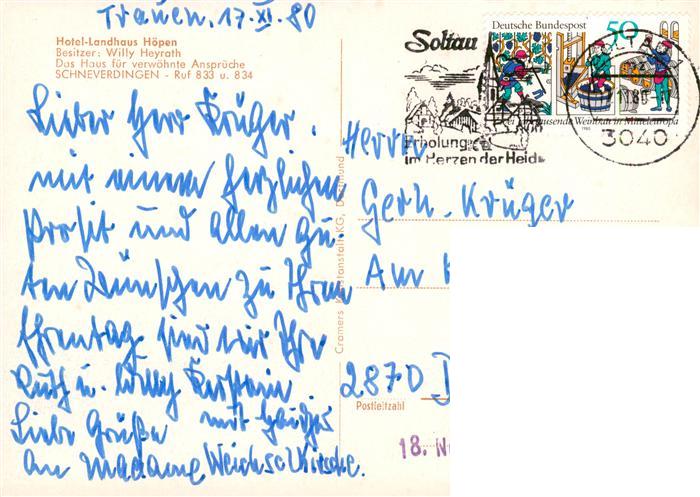 Trauen, 17. XI. 80
Hotel-Landhaus Höpen
Besitzer: Willy Heyrath
Das Haus für verwöhnte Ansprüche
SCHNEVERDINGEN - Ruf 833 u. 834
Lieber Herr Krüger.
mit einem herzlichen
Prosit und allen gu-
ten Wünschen zu Ihrem
Ehrentag sind wir Ihre
Ruth u. Willy
Liebe Grüße mit
an Madame Weichselkirsche.
Cramers Kunstanstalt KG, Dortmund
Soltau
Erholung
im Herzen der Heide
Deutsche Bundespost 50
Zwei Jahrtausende Weinbau in Mitteleuropa
1980
3040
Herrn
Gerh. Krüger
Am
2870 D
Postleitzahl
18. N